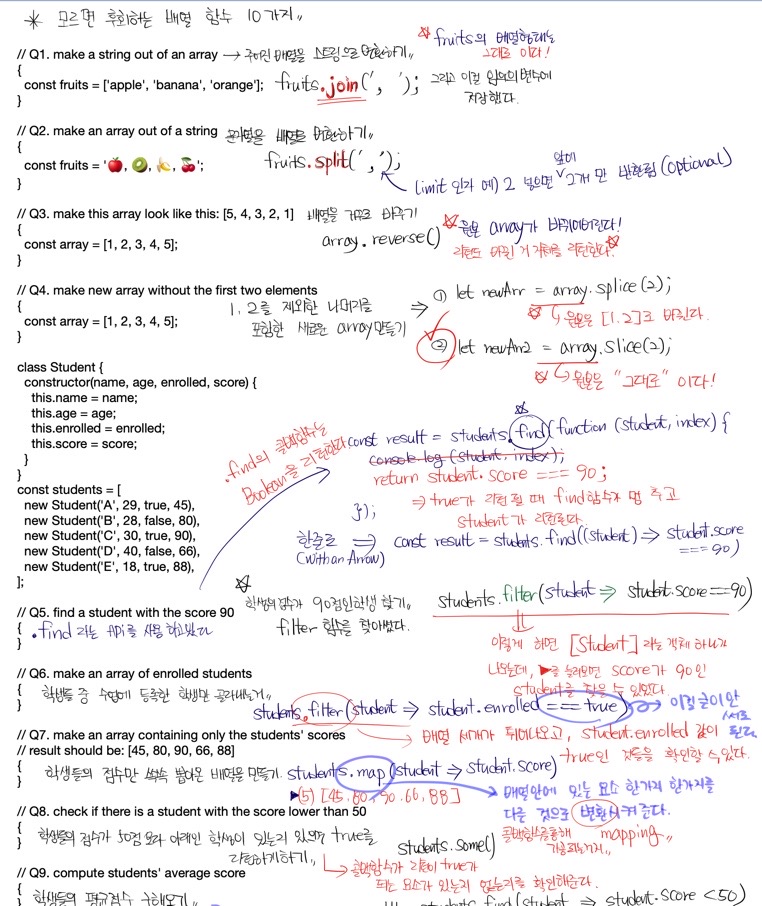 * 모르면 후회하는 배열 함수 10가지
// Q1. make a string out of an array → 주어진 배열을 스트링으로 변환하기
{
const fruits = ['apple', 'banana', 'orange'];
}
fruits.join(', ');
fruits의 배열형태는
그대로 이다!
그리고 이걸 임의의 변수에
저장했다.
// Q2. make an array out of a string 문자열을 배열로 변환하기
{
const fruits = '🍎, 🥝, 🍌, 🍒';
}
fruits.split(',');
limit 인자 예) 2 넣으면 앞에 2개 만 반환됨 (optional)
// Q3. make this array look like this: [5, 4, 3, 2, 1] 배열을 거꾸로 바꾸기
{
const array = [1, 2, 3, 4, 5];
}
array.reverse()
원본 array가 바뀌어버린다!
리턴도 바뀐 거 자체를 리턴한다.
// Q4. make new array without the first two elements
{
const array = [1, 2, 3, 4, 5];
}
1, 2를 제외한 나머지를
포함한 새로운 array만들기
⇒ ① let newArr = array.splice(2);
↳ 원본은 [1.2]로 바뀐다.
② let newArr2 = array.slice(2);
↳ 원본은 "그대로" 이다!
class Student {
constructor(name, age, enrolled, score) {
this.name = name;
this.age = age;
this.enrolled = enrolled;
this.score = score;
}
}
const students = [
new Student('A', 29, true, 45),
new Student('B', 28, false, 80),
new Student('C', 30, true, 90),
new Student('D', 40, false, 66),
new Student('E', 18, true, 88),
];
.find의 콜백함수는
Boolean을 리턴한다
const result = students.find(function (student, index) {
console.log (student, index);
return student.score === 90;
⇒ true가 리턴 될 때 find함수가 멈추고
student가 리턴된다
});
한줄로 ⇒ const result = students.find((student) ⇒ student.score
(with an Arrow) === 90)
// Q5. find a student with the score 90
{ .find 라는 API를 사용 하고있다
}
학생의 점수가 90점인학생 찾기
filter 함수를 찾아썼다.
students.filter(student ⇒ student.score==90)
이렇게 하면 [Student] 라는 객체 하나가
나오는데, ▶를 눌러보면 score가 90인
student를 찾을 수 있었다.
// Q6. make an array of enrolled students
{ 학생들 중 수업에 등록한 학생만
}
students.filter(student ⇒ student.enrolled === true)
→ 배열 세개가 튀어나오고, student.enrolled 값이
true인 것들을 확인할 수 있다.
// Q7. make an array containing only the students' scores
// result should be: [45, 80, 90, 66, 88]
{ 학생들의 점수만 쏙쏙 뽑아온 배열을 만들기.
}
students.map(student ⇒ student.score)
▶(5) [45, 80, 90, 66, 88]
→ 배열안에 있는 요소 한가지 한가지를
다른 것으로 변환시켜준다.
mapping
// Q8. check if there is a student with the score lower than 50
{ 학생들의 점수가 50점 보다 아래인 학생이 있는지 있으면 true를
} 리턴하게하기
students.some()
↳ 콜백함수가 리턴이 true가
되는 요소가 있는지 없는지를 확인해준다.
// Q9. compute students' average score
{ 학생들의 평균점수 구해오기
students.find(student ⇒ student.score <50)